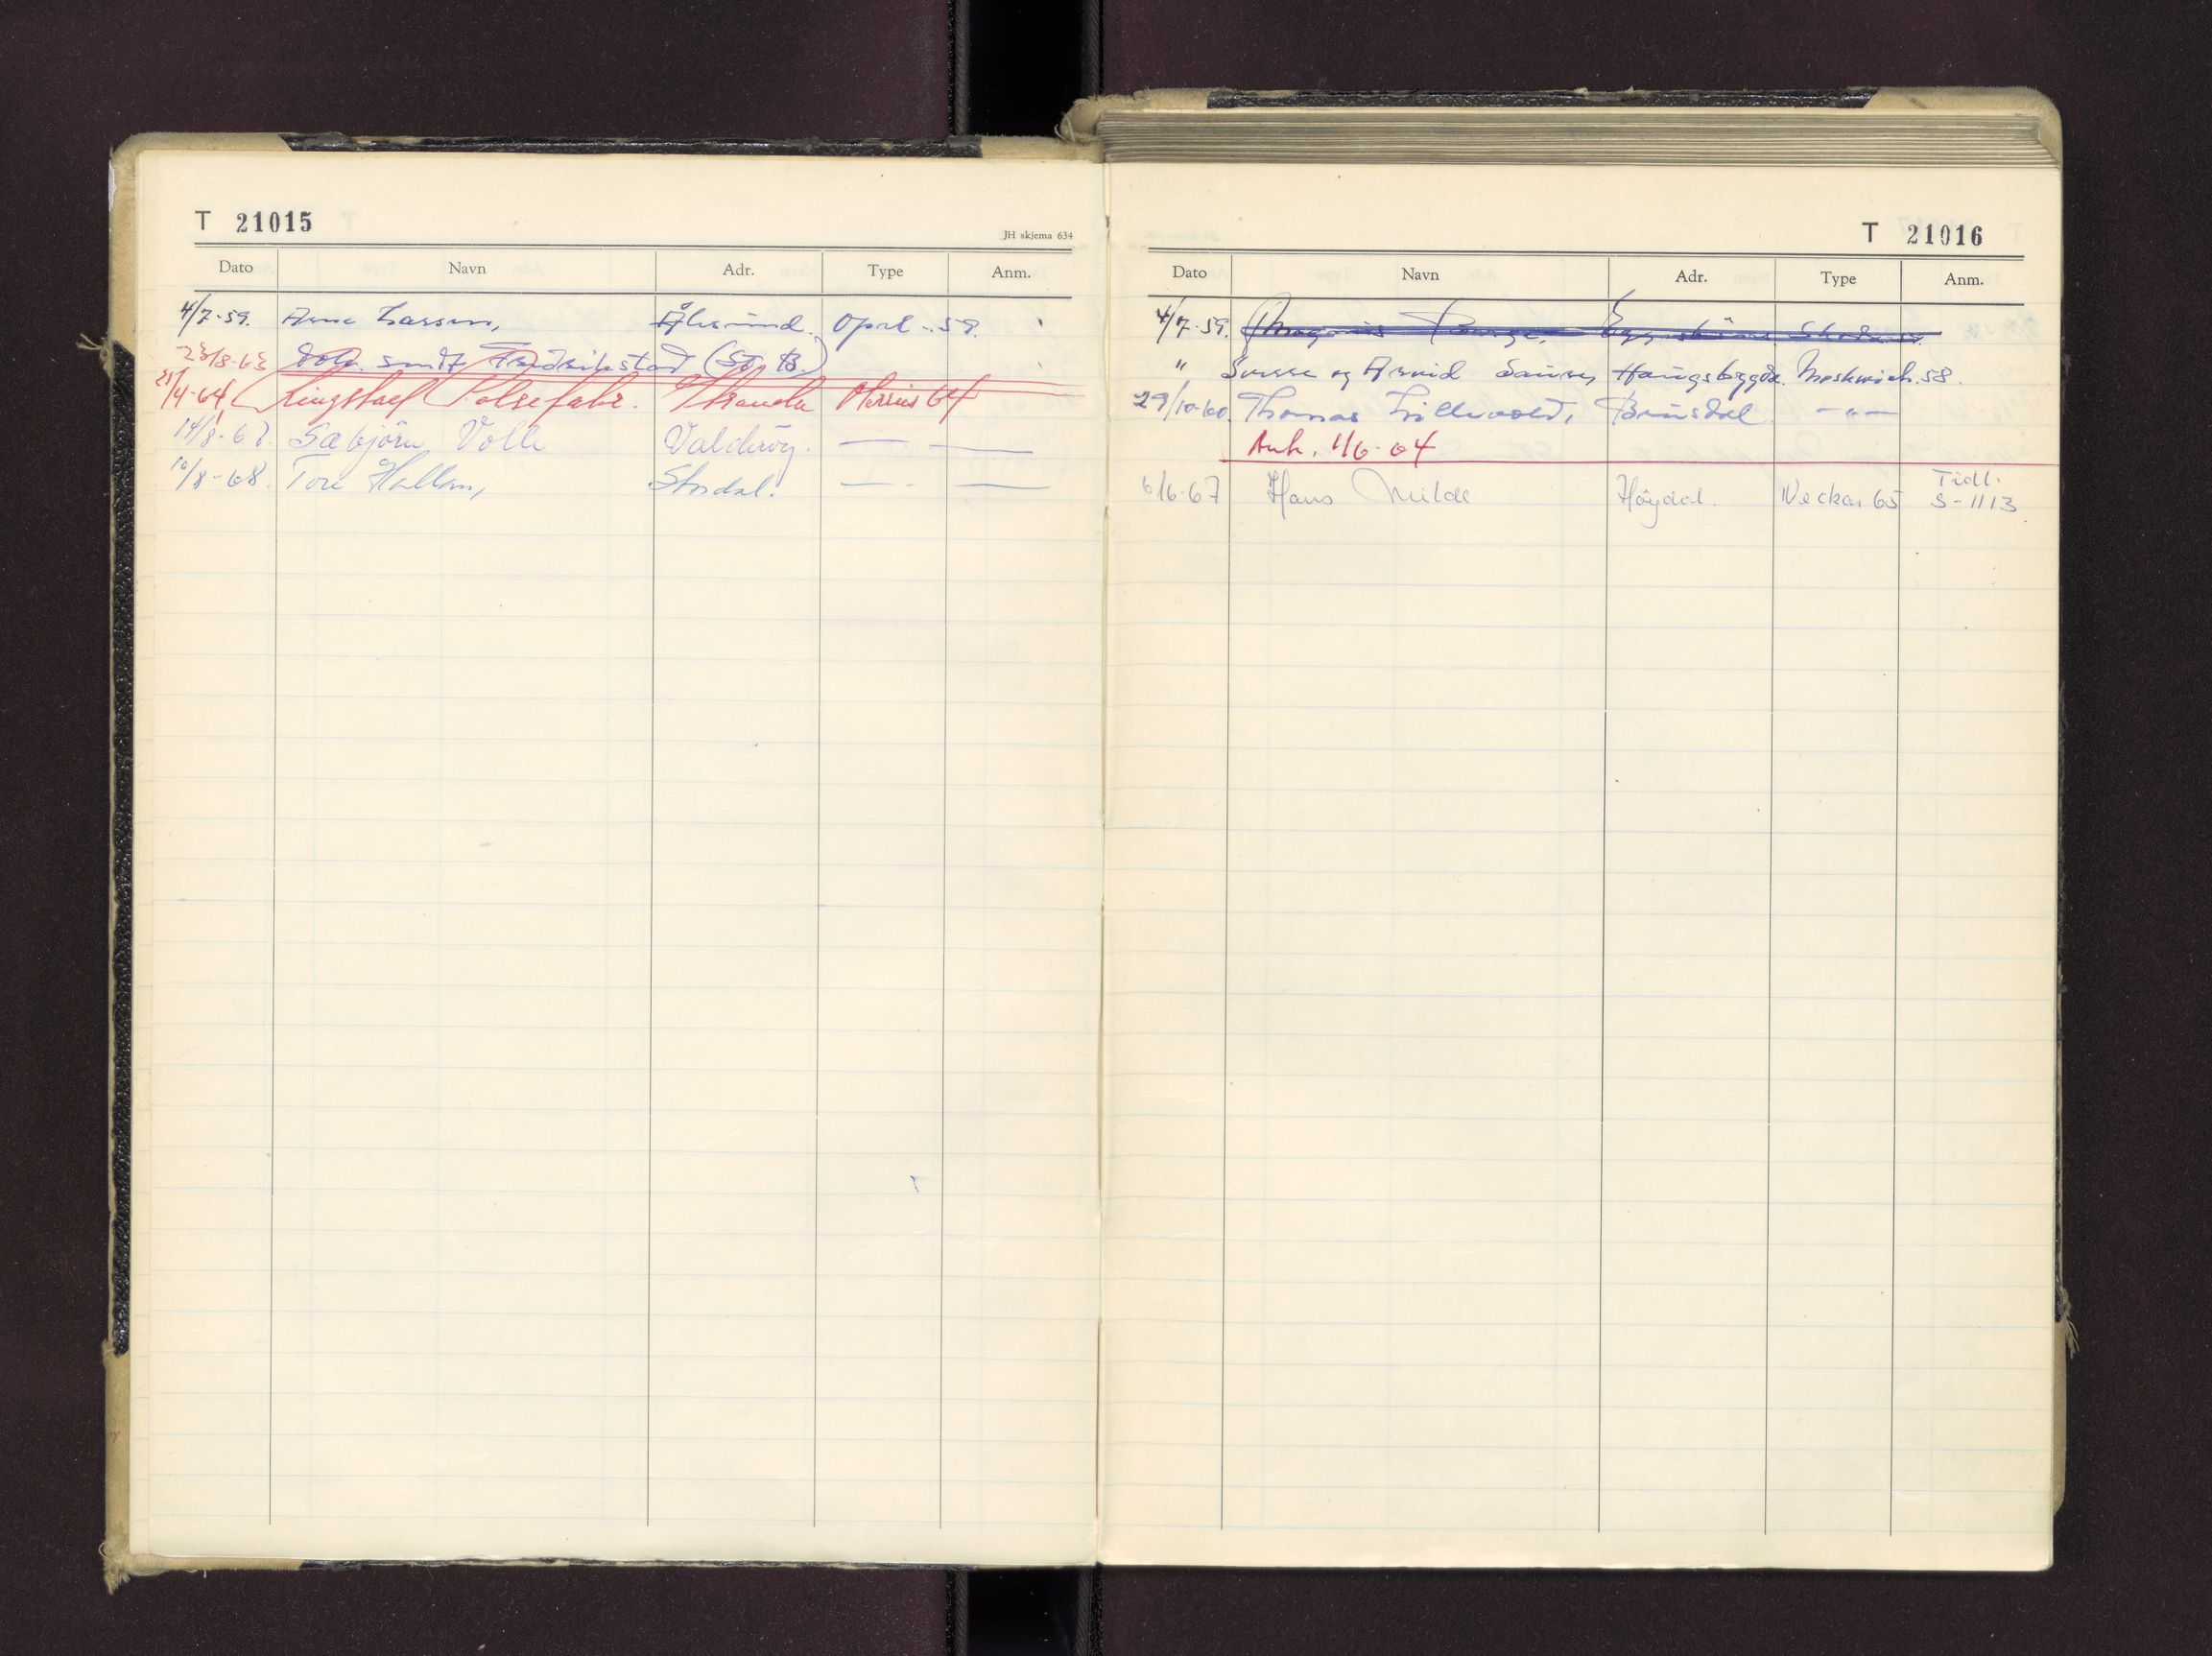 T 21015
JH skjema 634
Dato Navn Adr. Type Anm.
4/7-59. Arne Larsen, Ålesund. Opel -59.
23/8-63 solgt Fredrikstad (St. B.)
21/4-64 Ringstad Pølsefabr. Stranda Morris 64
14/8-67. Sæbjörn Volle Valderöy. — —
10/8-68. Tore Hallem, Stordal. — —
T 21016
Dato Navn Adr. Type Anm.
4/7-59. Magnus
" Sverre og Arvid Saure, Haugsbygda. Moskwich. 58.
29/10-60. Thomas Lillevold, Brusdal —"—
Avh. 1/6-64
6/6-67 Hans Milde Høydal. Weckar 65 Tidl.
S-1113